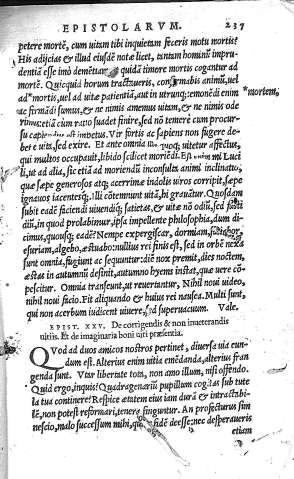 EPISTOLARVM. 237
petere mortē, cum uitam tibi inquietam feceris metu mortis?
His adijcias & illud eiusdē notæ licet, tantam hominū impru-
dentiā esse imò demētiam, quidā timore mortis cogantur ad
mortē. Quicquid horum tractaueris, confirmabis animū, uel
ad *mortis, uel ad uitæ patientiā, aut in utrunq;: emonēdi enim *mortem,
ac firmādi sumus, & ne nimis amemus uitam, & ne nimis ode
rimus, etiā cum ratio suadet finire, sed nō temerè cum procur-
su capiendus est impetus. Vir fortis ac sapiens non fugere de-
bet è uita, sed exire. Et ante omnia quoq; uitetur affectus,
qui multos occupauit, libido scilicet moriēdi. Est enim mi Luci
li, ut ad alia, sic etiā ad moriendū inconsulta animi inclinatio,
quæ sæpe generosos atq; acerrimæ indolis uiros corripit, sæpe
ignauos iacentesq;. Illi cōtemnunt uitā, hi grauātur. Quosdam
subit eadē faciēdi uiuendiq; satietas, & uitæ nō odiū, sed fasti-
diū, in quod prolabimur, ipsa impellente philosophia, dum di-
cimus, quousq; eadē? Nempe expergiscar, dormiam,
esuriam, algebo, æstuabo: nullius rei finis est, sed in orbē nexa
sunt omnia, fugiunt ac sequuntur: diē nox premit, dies noctem,
æstas in autumnū desinit, autumno hyems instat, quæ uere cō-
pescitur. Omnia transeunt, ut reuertantur, Nihil noui uideo,
nihil noui facio. Fit aliquando & huius rei nausea. Multi sunt,
qui non acerbum iudicent uiuere, sed superuacuum. Vale.
EPIST. XXV. De corrigendis & non inueterandis
uitiis. Et de imaginaria boni uiri præsentia.
QVod ad duos amicos nostros pertinet, diuersa uia eun-
dum est. Alterius enim uitia emēdanda, alterius fran
genda sunt. Vtar libertate tota, non amo illum, nisi offendo.
Quid ergo, inquis? Quadragenariū pupillum cogitas sub tute
la tua continere? Respice ætatem eius iam durā & intractabi-
lē, non potest reformari, tenera finguntur. An profecturus sim
nescio, malo successum mihi, quàm fidē deesse: nec desperaueris
etiam